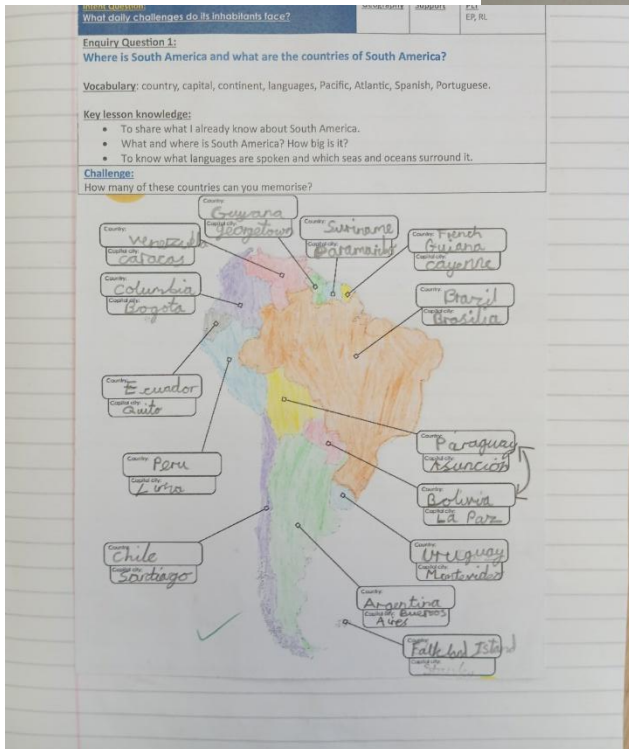 Intent Question:
What daily challenges do its inhabitants face?
Geography
Support
EP, RL
Enquiry Question 1:
Where is South America and what are the countries of South America?
Vocabulary: country, capital, continent, languages, Pacific, Atlantic, Spanish, Portuguese.
Key lesson knowledge:
• To share what I already know about South America.
• What and where is South America? How big is it?
• To know what languages are spoken and which seas and oceans surround it.
Challenge:
How many of these countries can you memorise?
Country:
Guyana
Capital city:
georgetown
Country:
Suriname
Capital city:
Paramaribo
Country:
French
Guiana
Capital city:
Cayenne
Country:
Venezuela
Capital city:
caracas
Country:
Columbia
Capital city:
Bogota
Country:
Brazil
Capital city:
Brasilia
Country:
Ecuador
Capital city:
Quito
Country:
Peru
Capital city:
Lima
Country:
Paraguay
Capital city:
Asunción
Country:
Bolivia
Capital city:
La Paz
Country:
Chile
Capital city:
Santiago
Country:
Uruguay
Capital city:
Montevideo
Country:
Argentina
Capital city: Buenos
Aires
Country:
Falkland Island
Capital city: